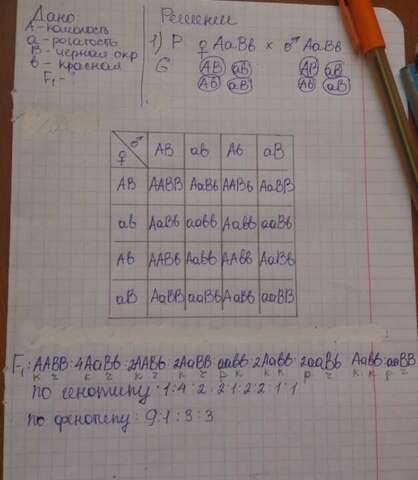 Дано:
А - комолость
а - рогатость
В - чёрная окр
в - красная
F₁ - ?
Решение
1) Р ♀ АаВв × ♂ АаВв
G АВ ав АВ аВ
Ав аВ Ав ав
♀ ♂ АВ ав Ав аВ
АВ ААВВ АаВв ААВв АаВВ
ав АаВв аавв Аавв ааВв
Ав ААВв Аавв ААвв АаВв
аВ АаВВ ааВв АаВв ааВВ
F₁: ААВВ : 4АаВв : 2ААВв : 2АаВВ : аавв : 2Аавв : 2ааВв ААвв : ааВВ
к ч к ч к ч к ч р к к к р ч к к р ч
по генотипу : 1 : 4 : 2 : 2 : 1 : 2 : 2 : 1 : 1
по фенотипу : 9 : 1 : 3 : 3